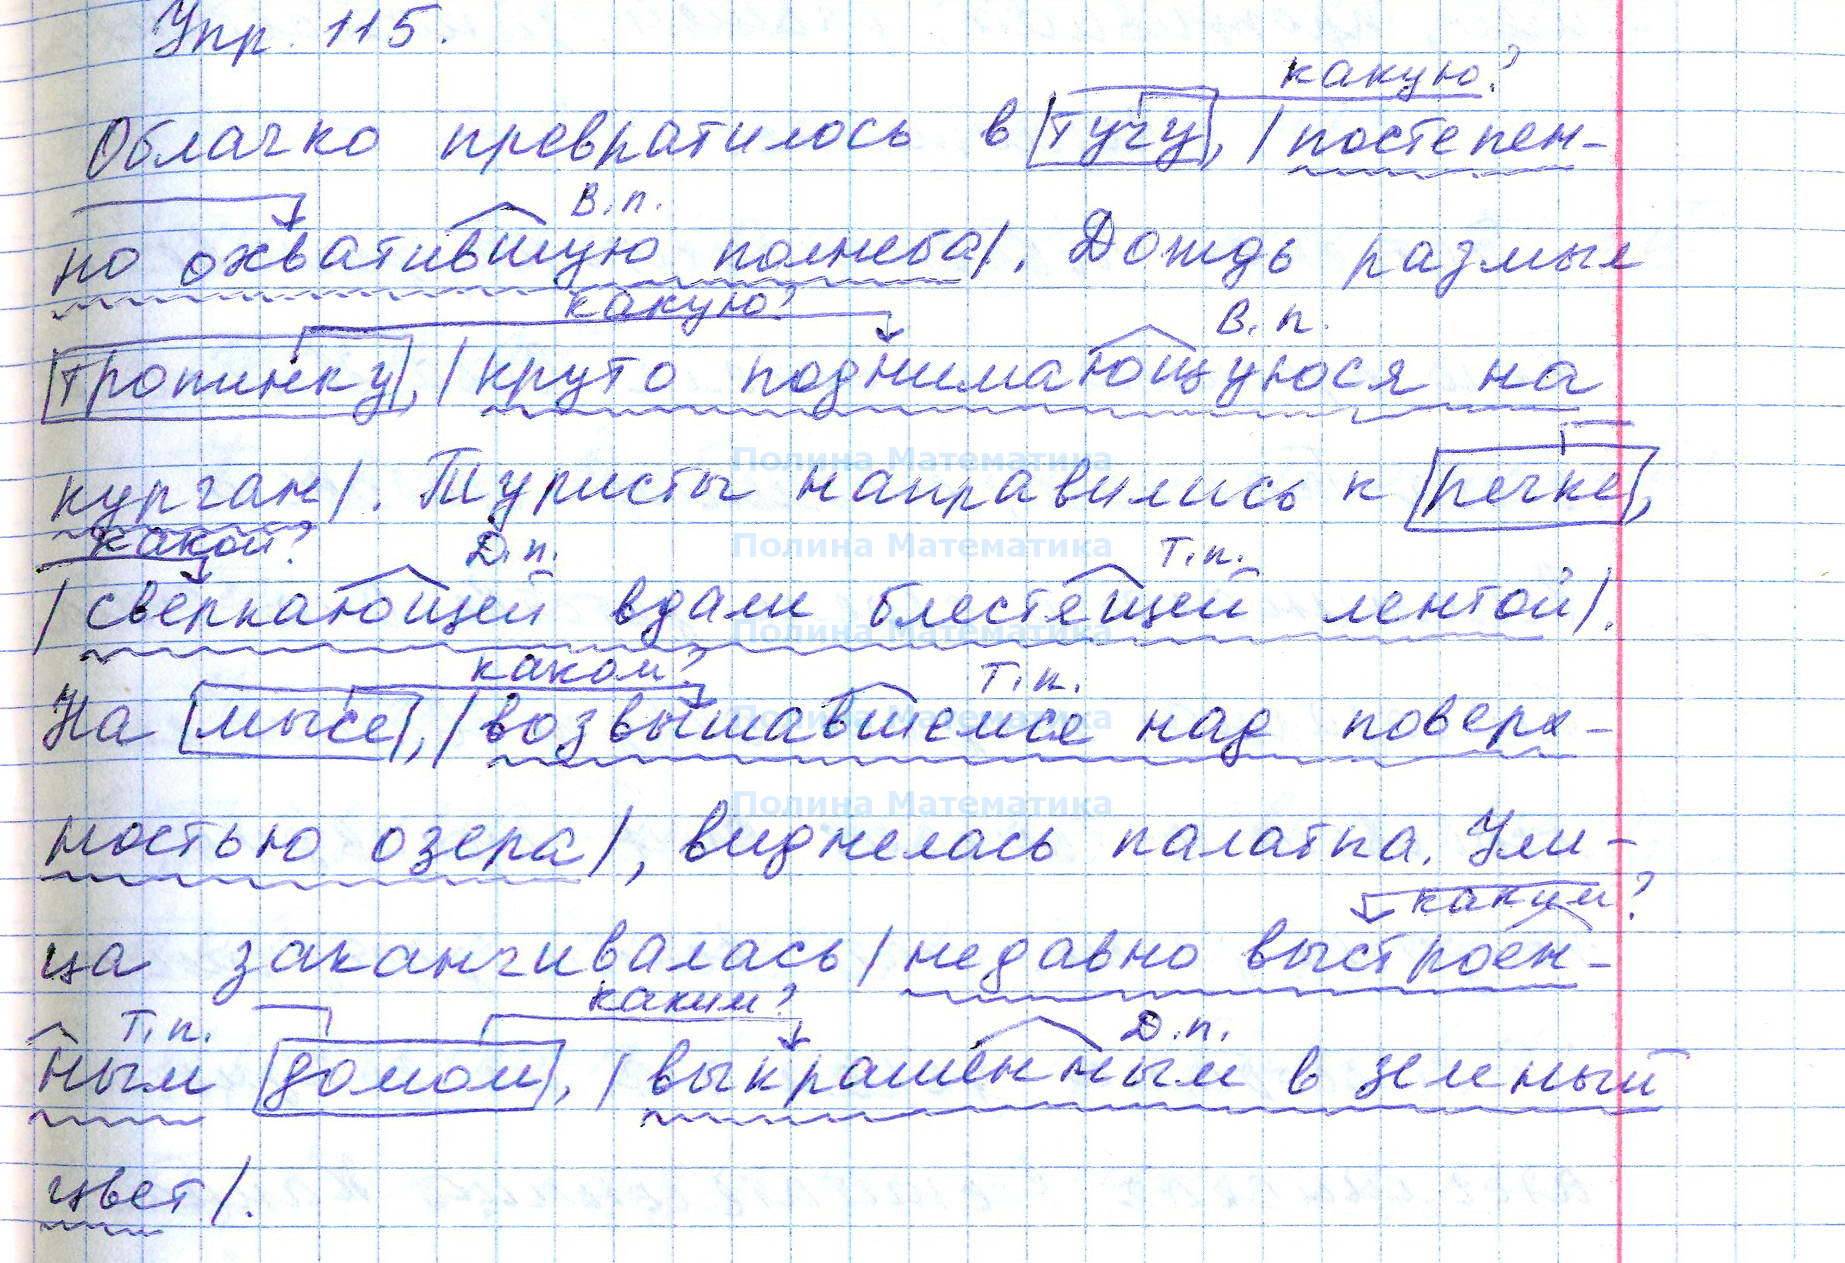 Упр. 115.
какую?
Облачко превратилось в |тучу|, |постепен-
В.п.
но охватившую полнеба|. Дождь размыл
какую? В.п.
|тропинку|, |круто поднимающуюся на
курган|. Туристы направились к |речке|,
какой? Д.п. Т.п.
|сверкающей вдали блестящей лентой|.
каком? Т.п.
На |мысе|, |возвышавшемся над поверх-
ностью озера|, виднелась палатка. Ули-
каким?
ца заканчивалась |недавно выстроен-
Т.п. каким? Д.п.
ным |домом|, |выкрашенным в зеленый
цвет|.
Полина Математика
Полина Математика
Полина Математика
Полина Математика
Полина Математика